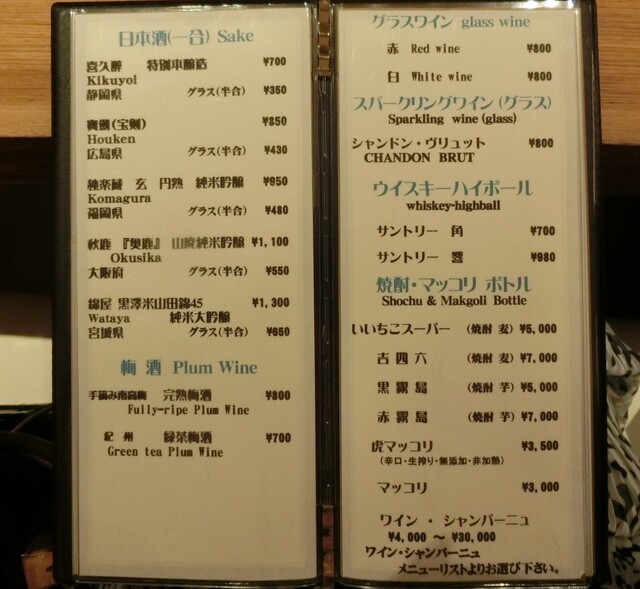 日本酒(一合) Sake
喜久酔 特別本醸造 ¥700
Kikuyoi
静岡県 グラス(半合) ¥350
寶劔(宝剣) ¥850
Houken
広島県 グラス(半合) ¥430
独楽蔵 玄 円熟 純米吟醸 ¥950
Komagura
福岡県 グラス(半合) ¥480
秋鹿 『奥鹿』 山廃純米吟醸 ¥1,100
Okusika
大阪府 グラス(半合) ¥550
綿屋 黒澤米山田錦45 ¥1,300
Wataya 純米大吟醸
宮城県 グラス(半合) ¥650
梅酒 Plum Wine
手摘み南高梅 完熟梅酒 ¥800
Fully-ripe Plum Wine
紀州 緑茶梅酒 ¥700
Green tea Plum Wine
グラスワイン glass wine
赤 Red wine ¥800
白 White wine ¥800
スパークリングワイン(グラス)
Sparkling wine (glass)
シャンドン・ヴリュット ¥800
CHANDON BRUT
ウイスキーハイボール
whiskey-highball
サントリー 角 ¥700
サントリー 響 ¥980
焼酎・マッコリ ボトル
Shochu & Makgoli Bottle
いいちこスーパー (焼酎 麦) ¥5,000
吉四六 (焼酎 麦) ¥7,000
黒霧島 (焼酎 芋) ¥5,000
赤霧島 (焼酎 芋) ¥7,000
虎マッコリ ¥3,500
(辛口・生搾り・無添加・非加熱)
マッコリ ¥3,000
ワイン ・ シャンパーニュ
¥4,000 ～ ¥30,000
ワイン・シャンパーニュ
メニューリストよりお選び下さい。